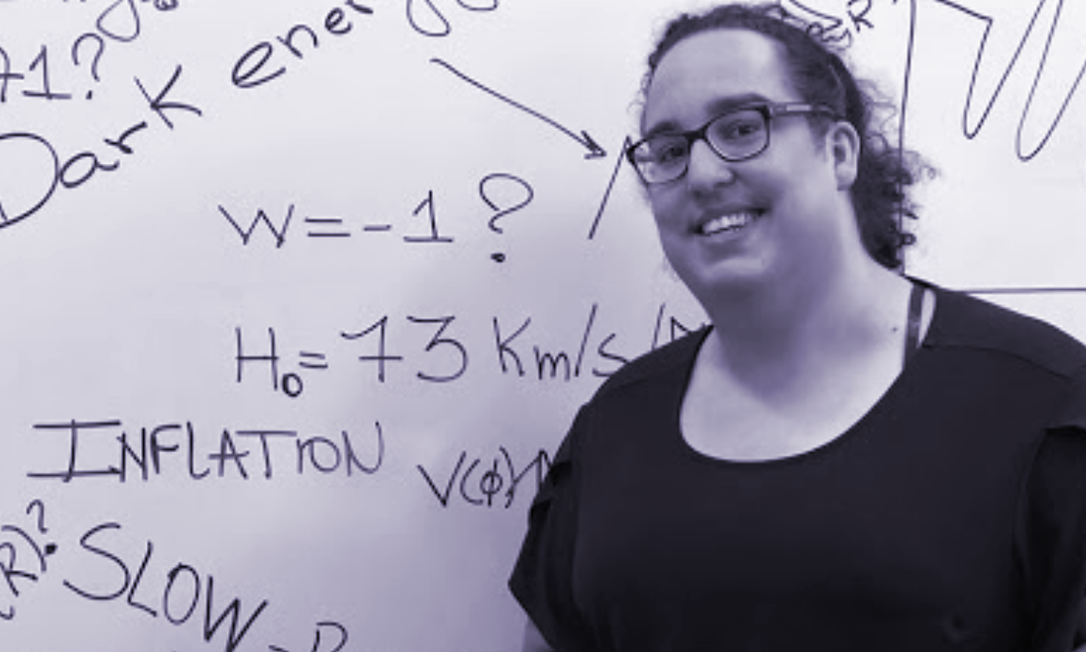 Dark energy
W=-1?
H₀=73 Km/s/
INFLATION V(ϕ)
(R)? SLOW-